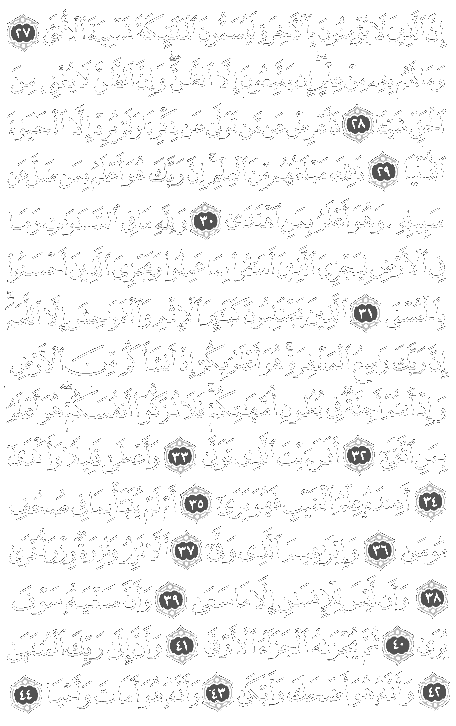 إِنَّ الَّذِينَ لَا يُؤْمِنُونَ بِالْآخِرَةِ لَيُسَمُّونَ الْمَلَائِكَةَ تَسْمِيَةَ الْأُنثَىٰ ٢٧
وَمَا لَهُم بِهِ مِنْ عِلْمٍ إِن يَتَّبِعُونَ إِلَّا الظَّنَّ وَإِنَّ الظَّنَّ لَا يُغْنِي مِنَ
الْحَقِّ شَيْئًا ٢٨ فَأَعْرِضْ عَن مَّن تَوَلَّىٰ عَن ذِكْرِنَا وَلَمْ يُرِدْ إِلَّا الْحَيَوٰةَ
الدُّنْيَا ٢٩ ذَٰلِكَ مَبْلَغُهُم مِّنَ الْعِلْمِ إِنَّ رَبَّكَ هُوَ أَعْلَمُ بِمَن ضَلَّ عَن
سَبِيلِهِ وَهُوَ أَعْلَمُ بِمَنِ اهْتَدَىٰ ٣٠ وَلِلَّهِ مَا فِي السَّمَٰوَٰتِ وَمَا
فِي الْأَرْضِ لِيَجْزِيَ الَّذِينَ أَسَٰٓـُٔوا بِمَا عَمِلُوا وَيَجْزِيَ الَّذِينَ أَحْسَنُوا
بِالْحُسْنَى ٣١ الَّذِينَ يَجْتَنِبُونَ كَبَٰٓئِرَ الْإِثْمِ وَالْفَوَٰحِشَ إِلَّا اللَّمَمَ
إِنَّ رَبَّكَ وَٰسِعُ الْمَغْفِرَةِ هُوَ أَعْلَمُ بِكُمْ إِذْ أَنشَأَكُم مِّنَ الْأَرْضِ
وَإِذْ أَنتُمْ أَجِنَّةٌ فِي بُطُونِ أُمَّهَٰتِكُمْ فَلَا تُزَكُّوا أَنفُسَكُمْ هُوَ أَعْلَمُ
بِمَنِ اتَّقَىٰ ٣٢ أَفَرَءَيْتَ الَّذِي تَوَلَّىٰ ٣٣ وَأَعْطَىٰ قَلِيلًا وَأَكْدَىٰ
٣٤ أَعِندَهُ عِلْمُ الْغَيْبِ فَهُوَ يَرَىٰ ٣٥ أَمْ لَمْ يُنَبَّأْ بِمَا فِي صُحُفِ
مُوسَىٰ ٣٦ وَإِبْرَٰهِيمَ الَّذِي وَفَّىٰ ٣٧ أَلَّا تَزِرُ وَازِرَةٌ وِزْرَ أُخْرَىٰ
٣٨ وَأَن لَّيْسَ لِلْإِنسَٰنِ إِلَّا مَا سَعَىٰ ٣٩ وَأَنَّ سَعْيَهُ سَوْفَ
يُرَىٰ ٤٠ ثُمَّ يُجْزَىٰهُ الْجَزَآءَ الْأَوْفَىٰ ٤١ وَأَنَّ إِلَىٰ رَبِّكَ الْمُنتَهَىٰ
٤٢ وَأَنَّهُ هُوَ أَضْحَكَ وَأَبْكَىٰ ٤٣ وَأَنَّهُ هُوَ أَمَاتَ وَأَحْيَا ٤٤